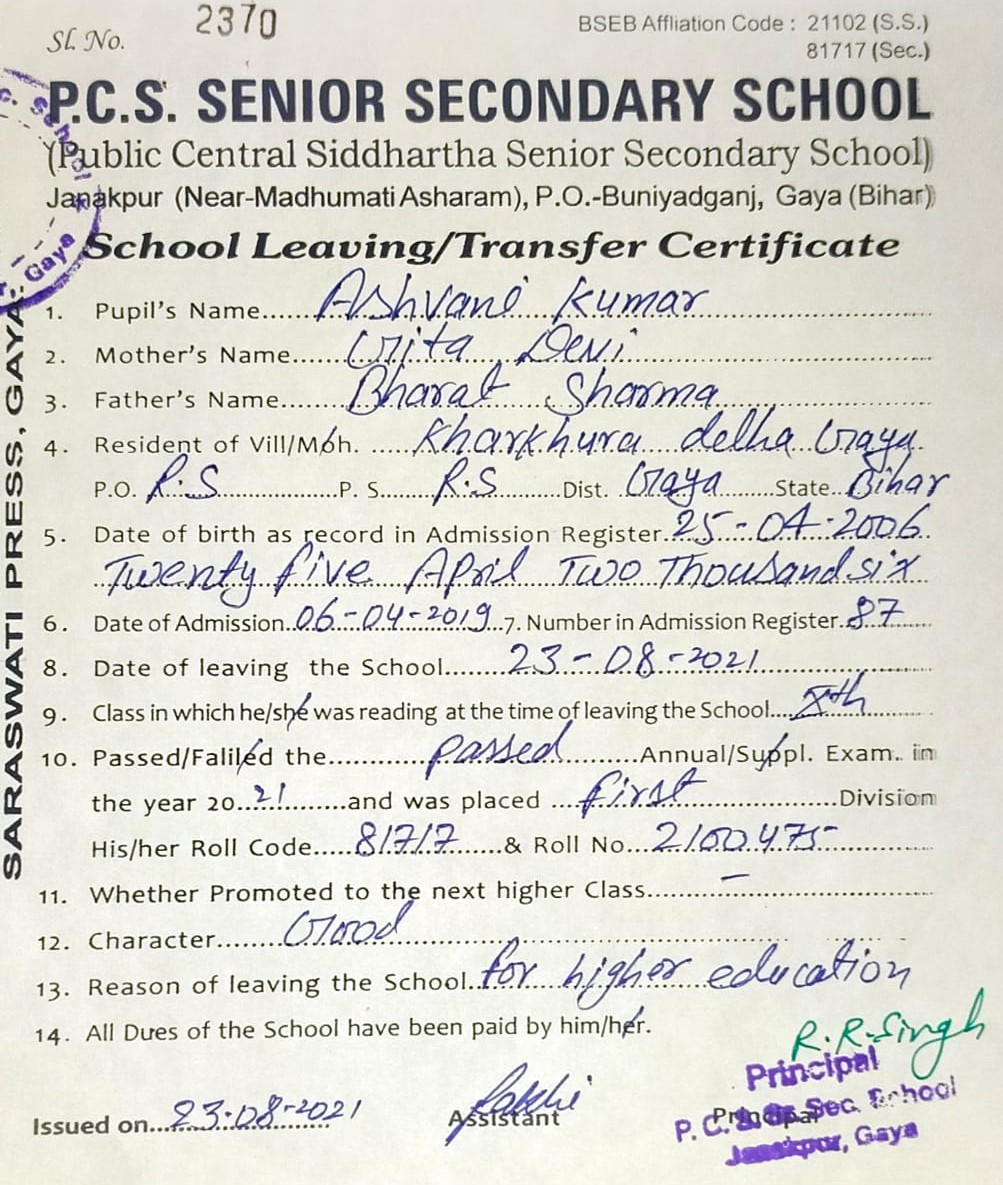 Sl. No. 2370
BSEB Affliation Code : 21102 (S.S.)
81717 (Sec.)
P.C.S. SENIOR SECONDARY SCHOOL
(Public Central Siddhartha Senior Secondary School)
Janakpur (Near-Madhumati Asharam), P.O.-Buniyadganj, Gaya (Bihar)
School Leaving/Transfer Certificate
1. Pupil's Name......Ashvani Kumar
2. Mother's Name......Grita Devi
3. Father's Name......Bharat Sharma
4. Resident of Vill/Moh. .....Kharkhura delha Gaya
P.O. R.S P. S. R.S Dist. Gaya State Bihar
5. Date of birth as record in Admission Register. 25-04-2006
Twenty five April Two Thousand six
6. Date of Admission. 06-04-2019 7. Number in Admission Register. 87
8. Date of leaving the School 23-08-2021
9. Class in which he/she was reading at the time of leaving the School Xth
10. Passed/Faliled the passed Annual/Suppl. Exam. in
the year 20 21 and was placed first Division
His/her Roll Code 81717 & Roll No. 2100475
11. Whether Promoted to the next higher Class –
12. Character Good
13. Reason of leaving the School for higher education
14. All Dues of the School have been paid by him/her.
R.R.Singh
Principal
Issued on 23-08-2021 Assistant Principal
P. C. S. Sr. Sec. School
Janakpur, Gaya
SARASWATI PRESS, GAYA.
Gaya